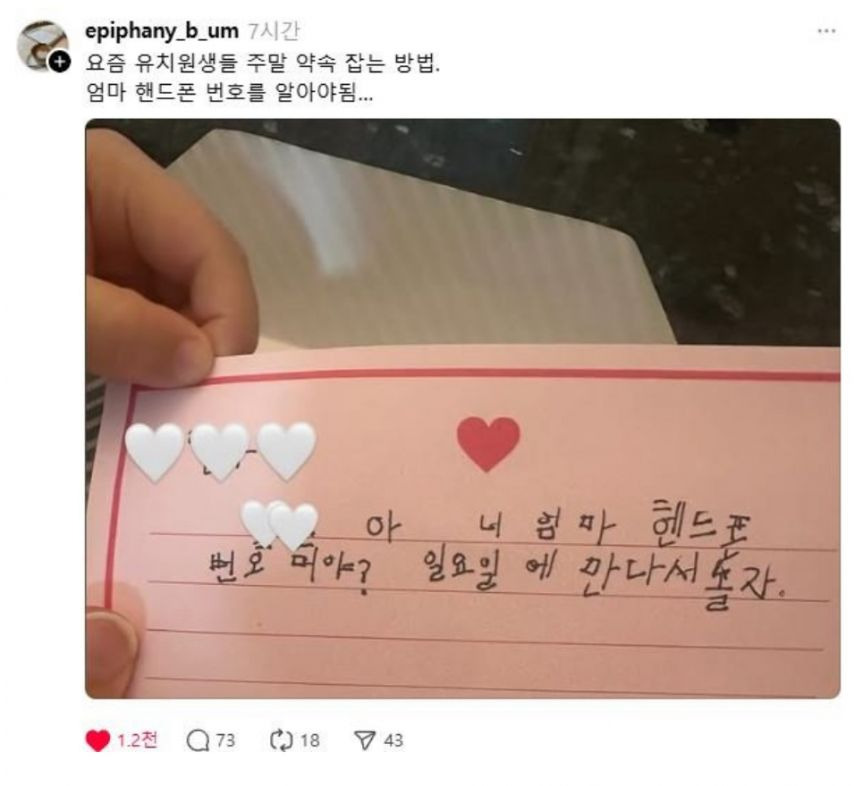 epiphany_b_um 7시간
요즘 유치원생들 주말 약속 잡는 방법.
엄마 핸드폰 번호를 알아야됨...
아 너 엄마 헨드폰
번호 미야? 일요일에 만다서 놀자.
1.2천 73 18 43